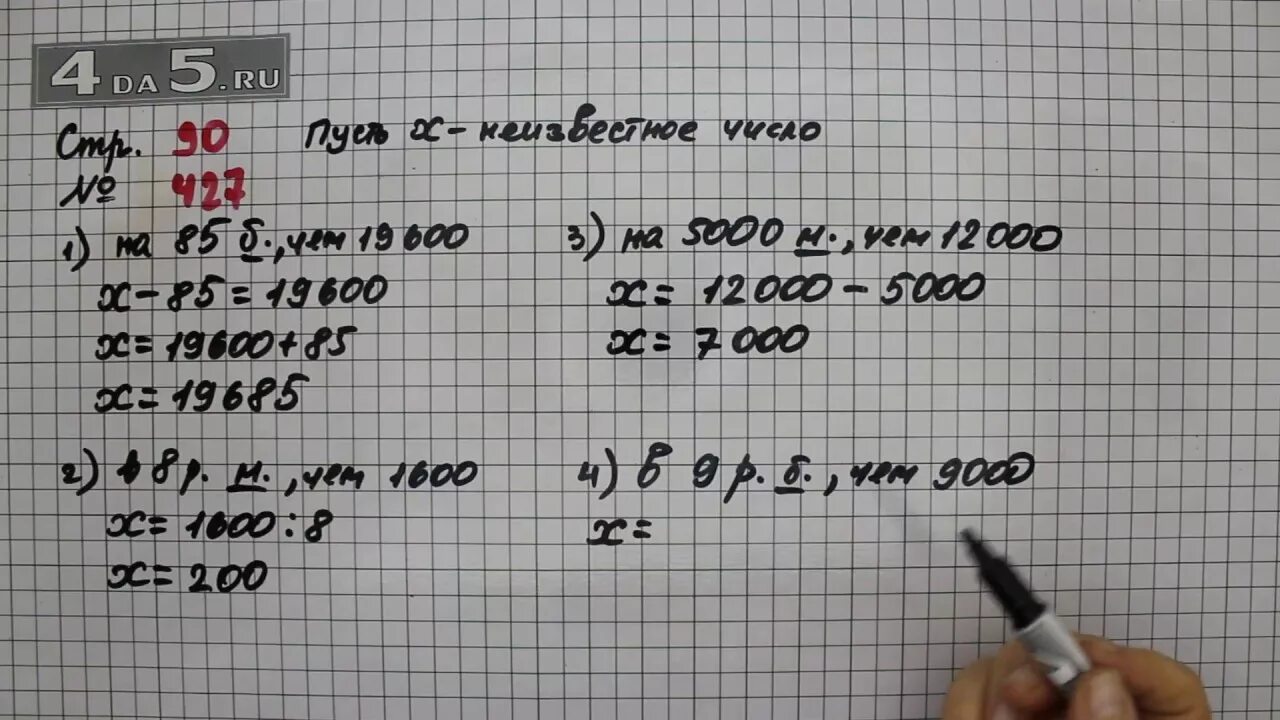 4 DA 5.RU
Стр. 90
Пусть х - неизвестное число
№ 427
1) на 85 б., чем 19600
х - 85 = 19600
х = 19600 + 85
х = 19685
2) в 8 р. м., чем 1600
х = 1600 : 8
х = 200
3) на 5000 м., чем 12000
х = 12000 - 5000
х = 7000
4) в 9 р. б., чем 9000
х =